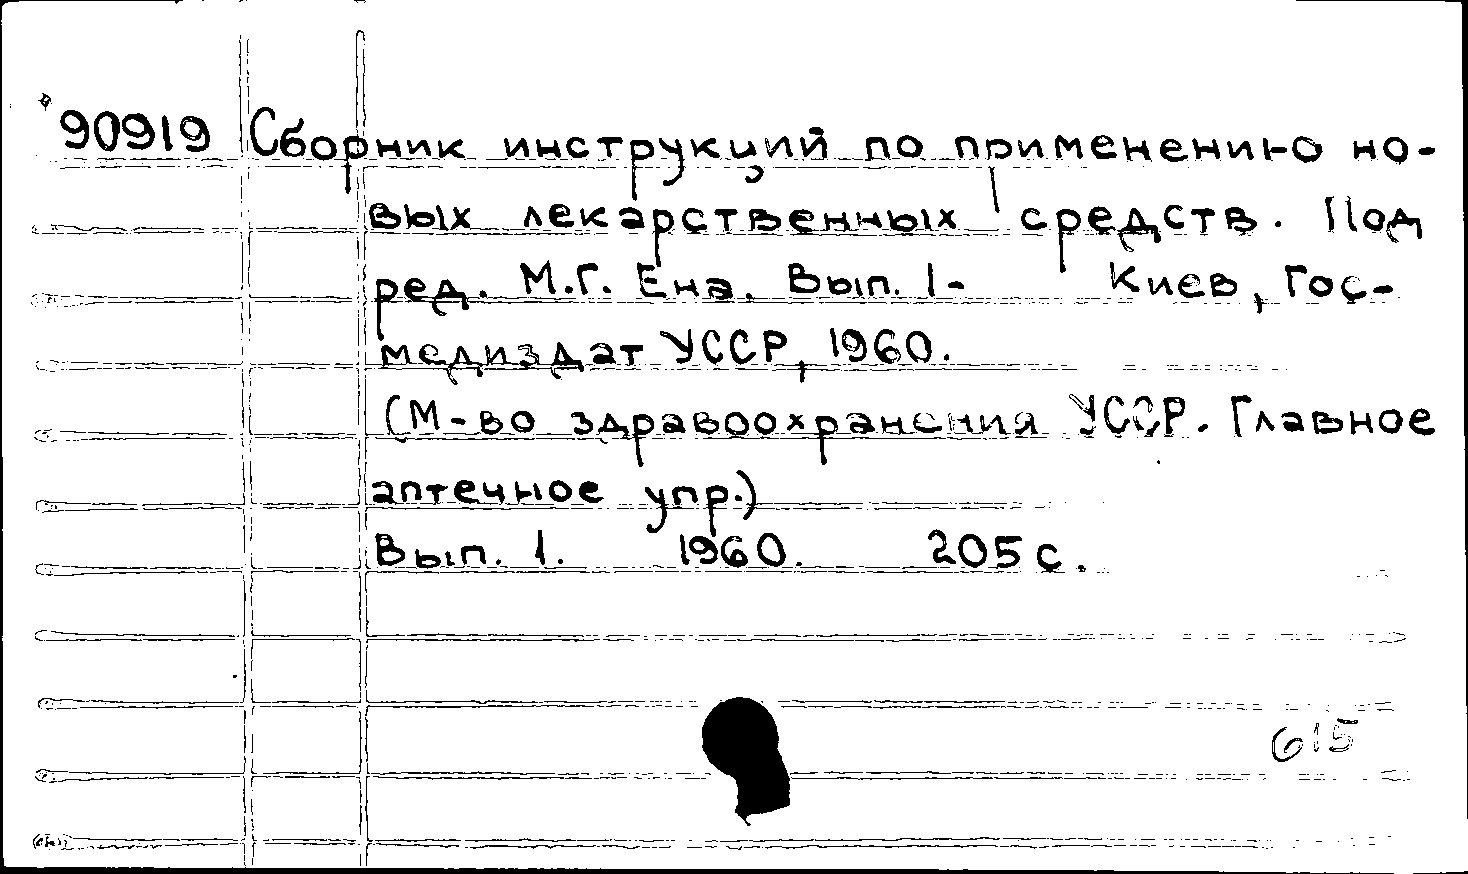 90919 Сборник инструкций по применению но-
вых лекарственных средств. Под
ред. М.Г. Ена. Вып. 1- Киев, Гос-
медиздат УССР, 1960.
(М-во здравоохранения УССР. Главное
аптечное упр.)
Вып. 1. 1960. 205 с.
615